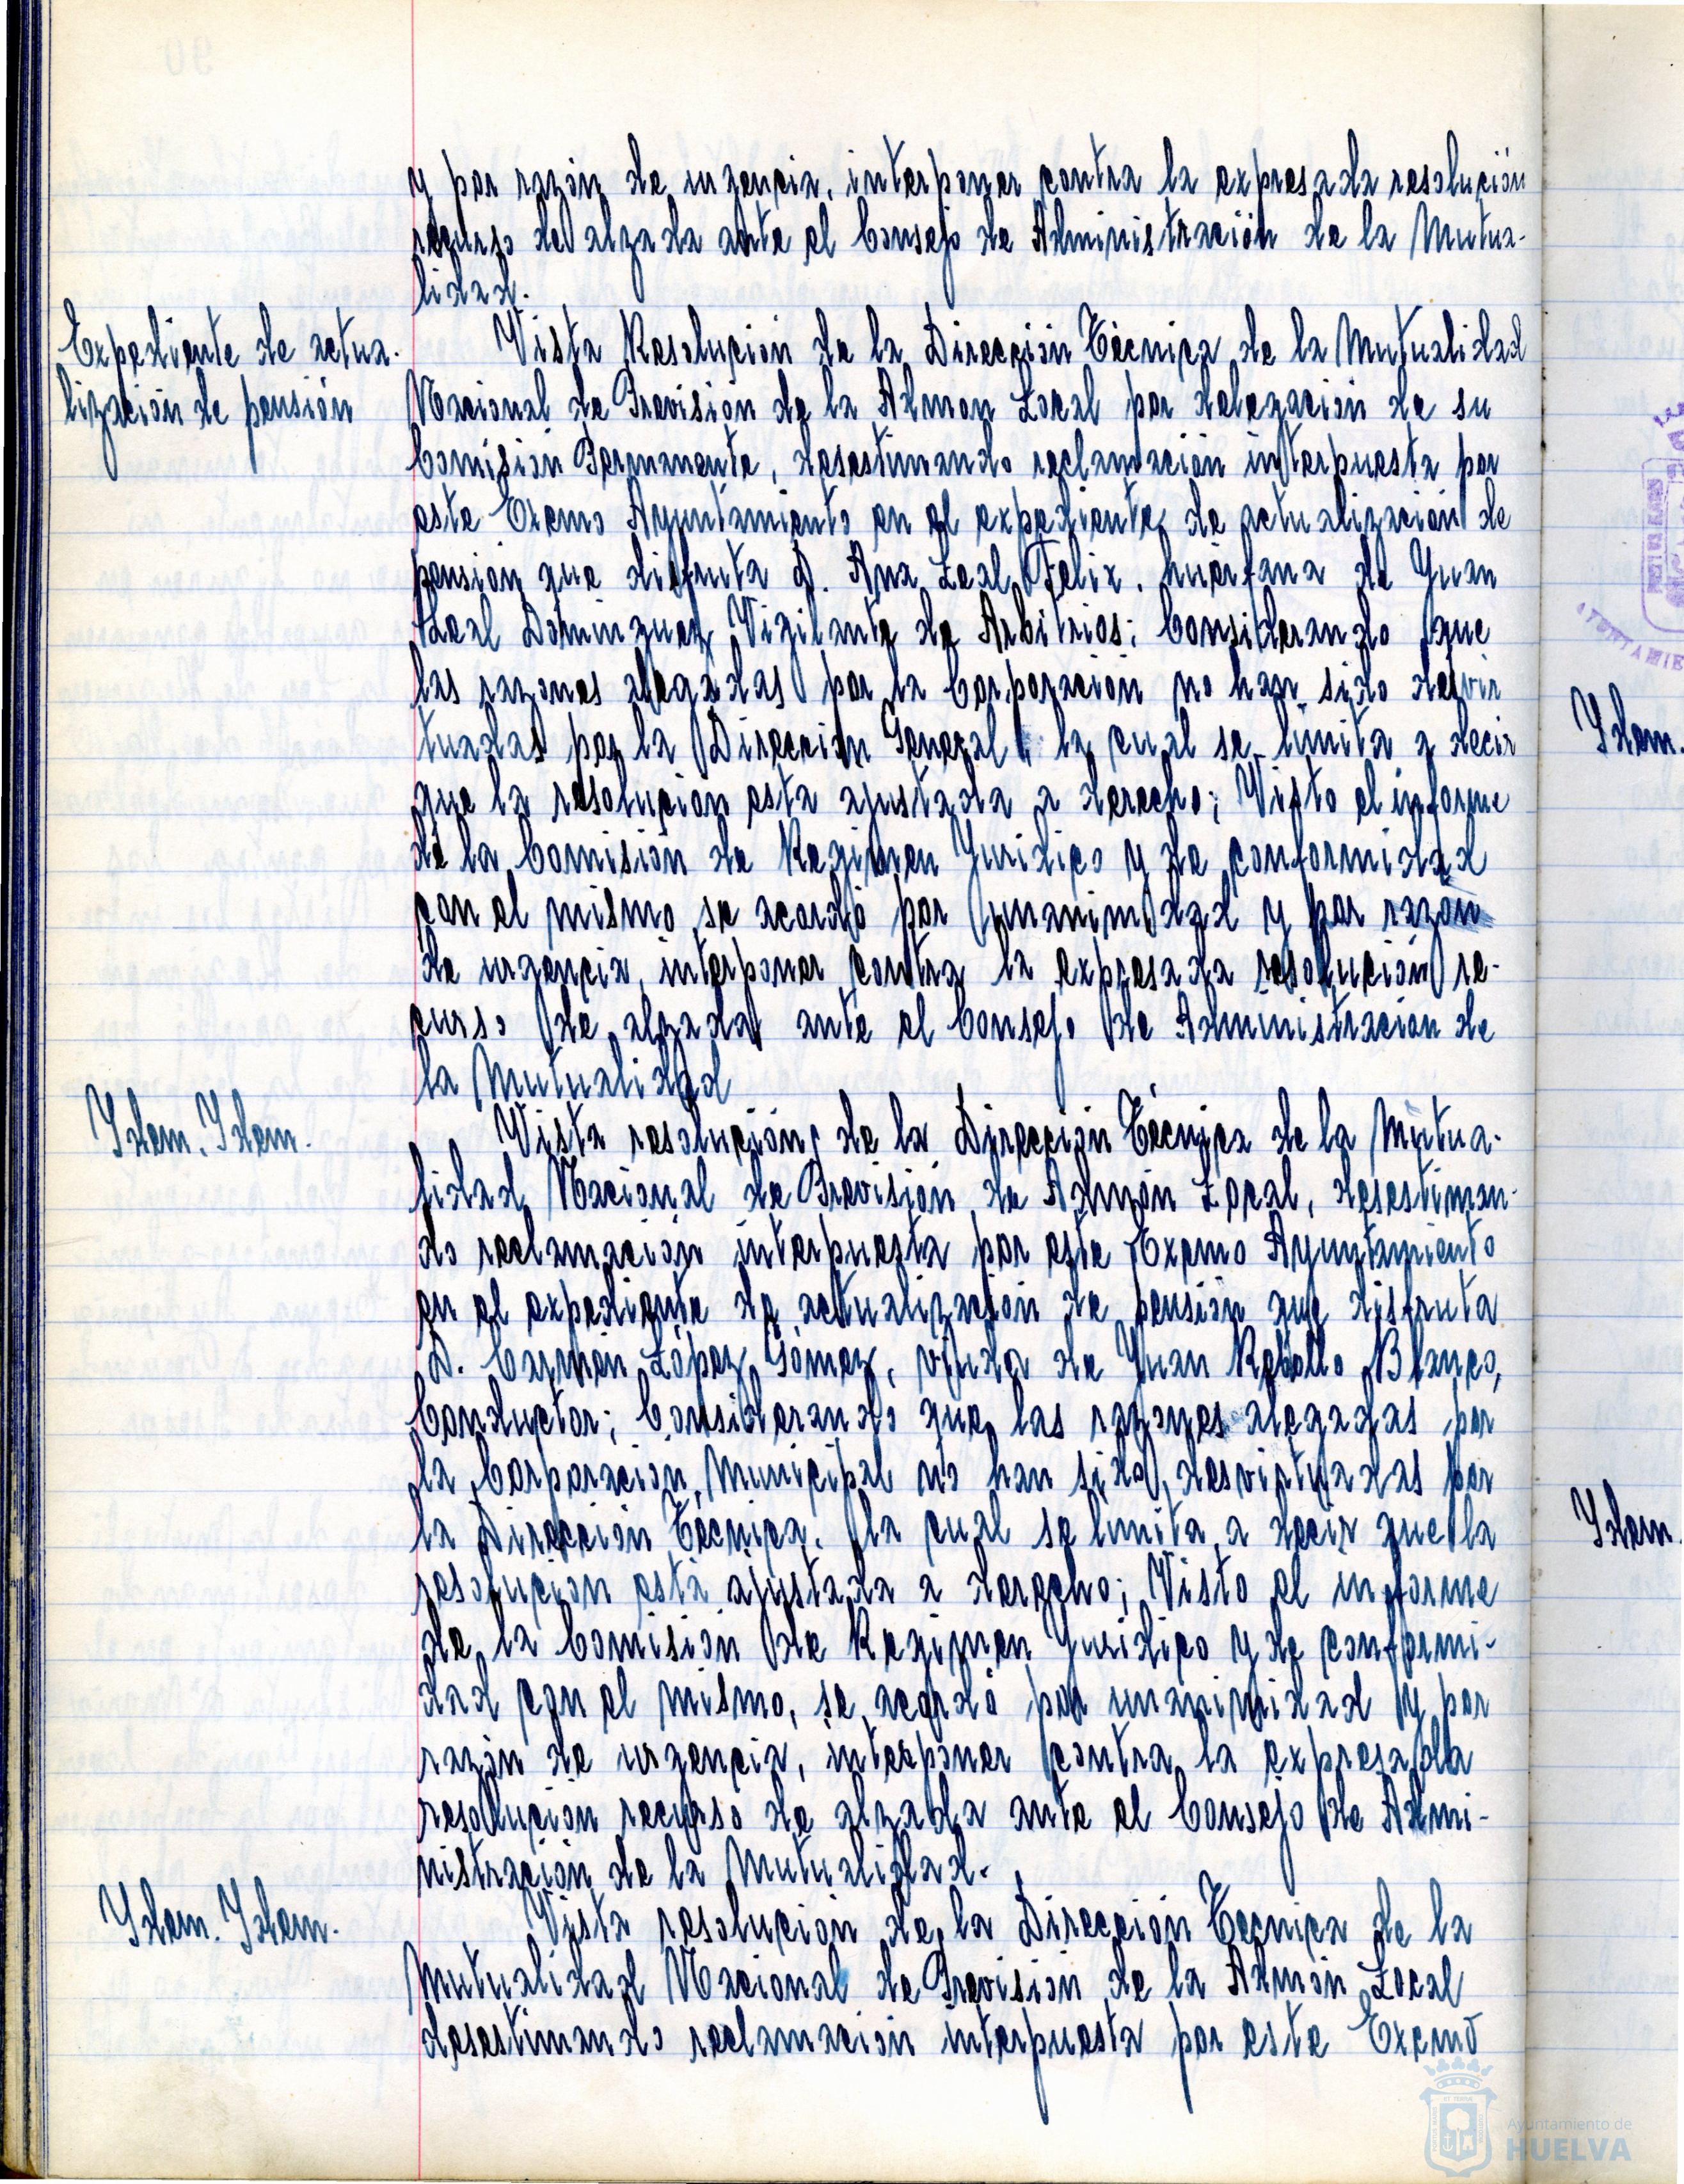 y por razón de urgencia, interponer contra la expresada resolución
recurso de alzada ante el Consejo de Administración de la Mutua-
lidad.
Expediente de actua-
lización de pensión
Vista Resolución de la Dirección Técnica de la Mutualidad
Nacional de Previsión de la Admon Local por delegación de su
Comisión Permanente, desestimando reclamación interpuesta por
este Excmo Ayuntamiento en el expediente de actualización de
pensión que disfruta D. Ana Leal Felix, huérfana de Juan
Leal Dominguez, Vigilante de Arbitrios; Considerando que
las razones alegadas por la Corporación no han sido desvir
tuadas por la Dirección General la cual se limita a decir
que la resolución esta ajustada a derecho; Visto el informe
de la Comisión de Regimen Juridico y de conformidad
con el mismo se acordó por unanimidad y por razón
de urgencia, interponer contra la expresada resolución re-
curso de alzada ante el Consejo de Administración de
la Mutualidad
Idem. Idem.
Vista resolución de la Dirección Técnica de la Mutua-
lidad Nacional de Previsión de Admón Local, desestiman-
do reclamación interpuesta por este Excmo Ayuntamiento
en el expediente de actualización de pensión que disfruta
D. Carmen López Gómez, viuda de Juan Rebollo Blanco,
Conductor; Considerando que las razones alegadas por
la Corporación Municipal no han sido desvirtuadas por
la Dirección Técnica, la cual se limita a decir que la
resolución está ajustada a derecho; Visto el informe
de la Comisión de Regimen Juridico y de conformi-
dad con el mismo, se acordó por unanimidad y por
razón de urgencia, interponer contra la expresada
resolución recurso de alzada ante el Consejo de Admi-
nistración de la Mutualidad.
Idem. Idem.
Vista resolución de la Dirección Técnica de la
Mutualidad Nacional de Previsión de la Admón Local
desestimando reclamación interpuesta por este Excmo
Idem.
Idem.
Ayuntamiento de
HUELVA